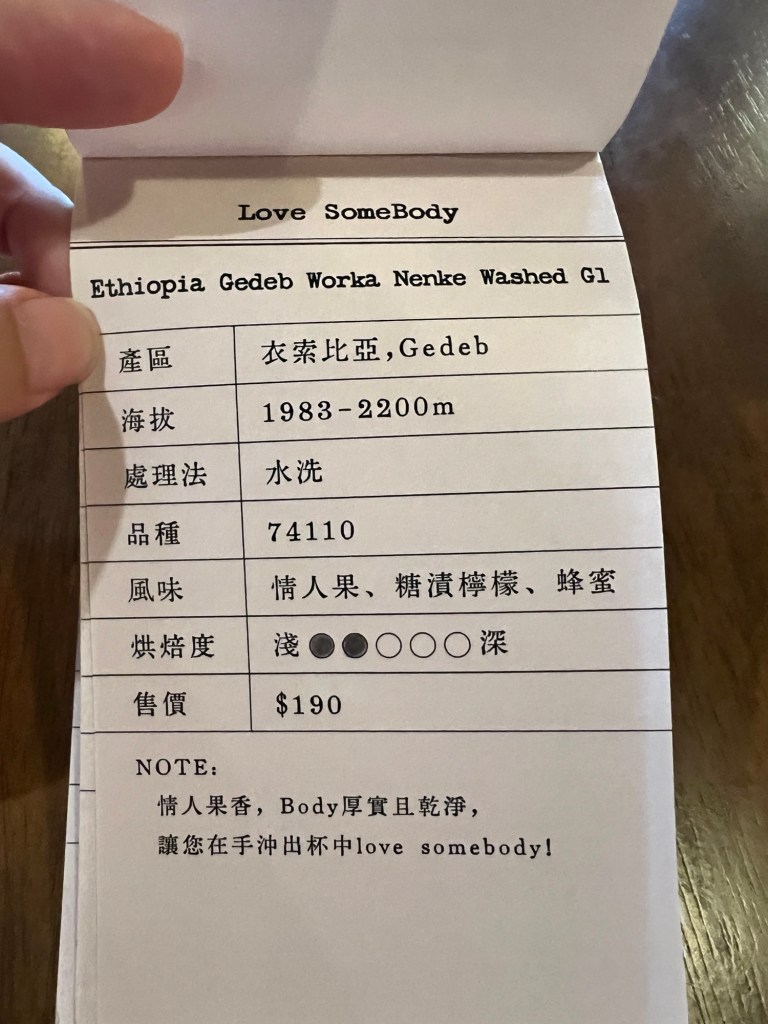 Love SomeBody
Ethiopia Gedeb Worka Nenke Washed G1
產區 衣索比亞,Gedeb
海拔 1983-2200m
處理法 水洗
品種 74110
風味 情人果、糖漬檸檬、蜂蜜
烘焙度 淺●●○○○深
售價 $190
NOTE:
情人果香,Body厚實且乾淨,
讓您在手沖出杯中love somebody!